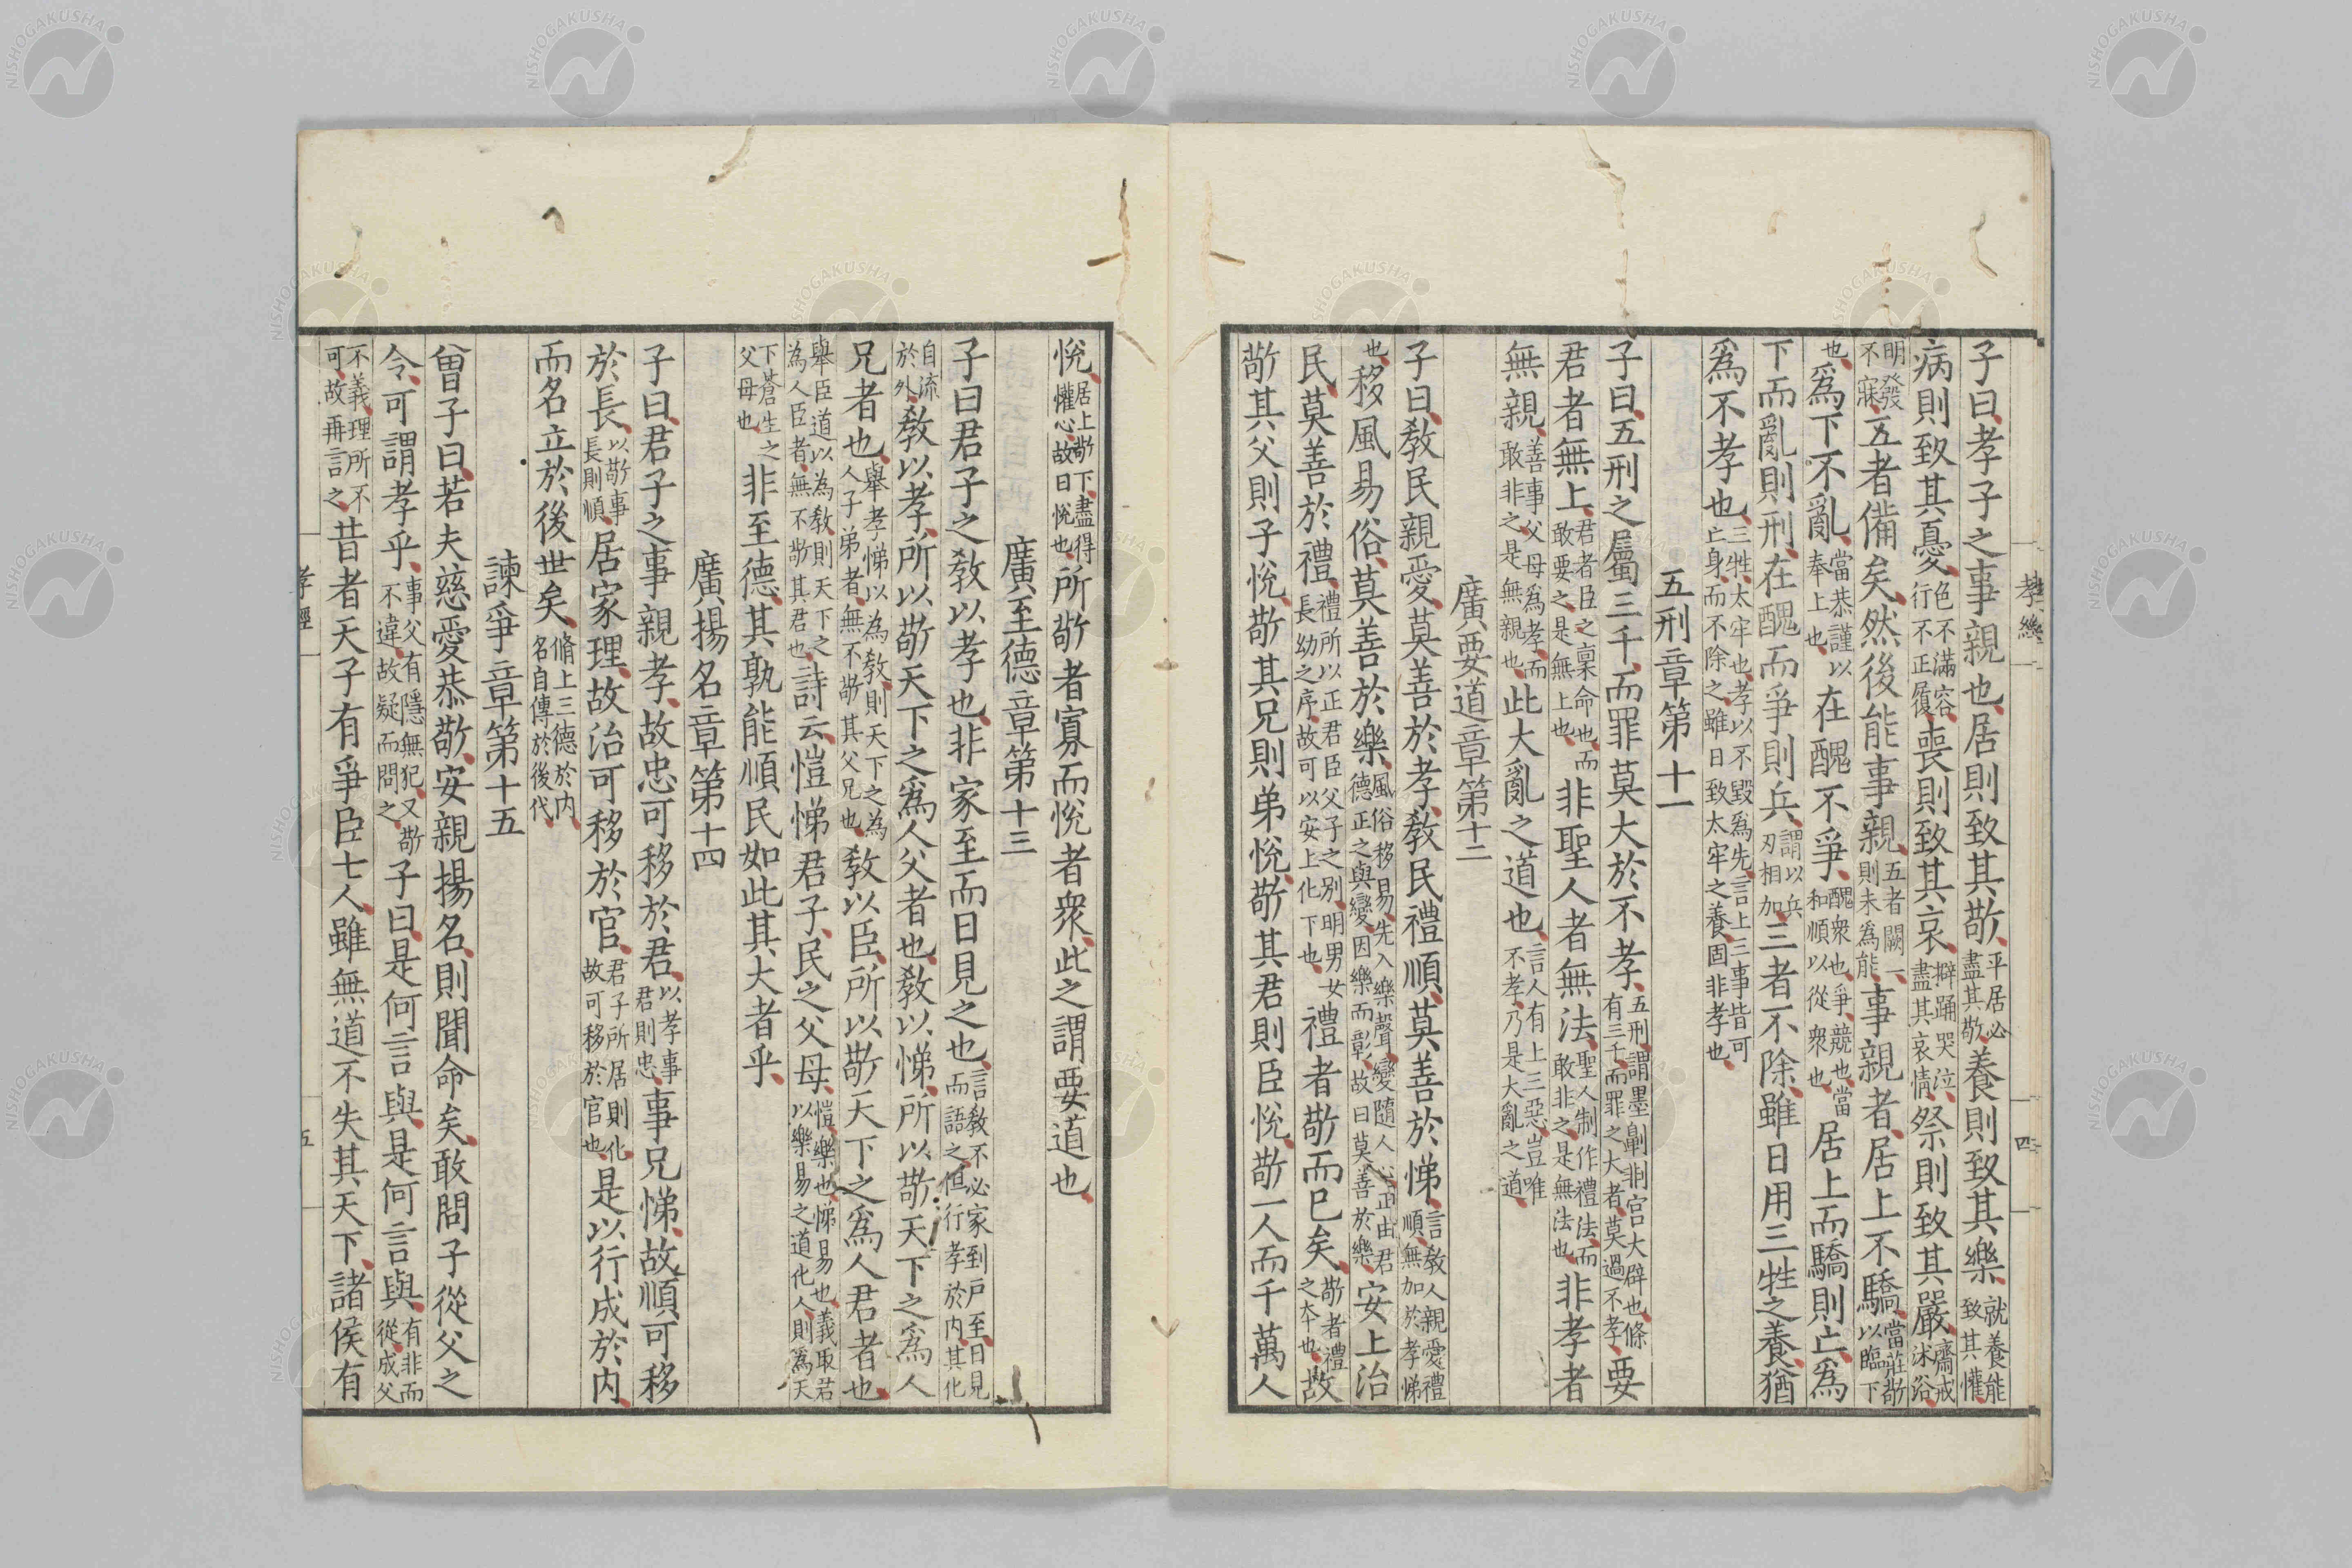 子曰孝子之事親也居則致其敬平居必盡其敬養則致其樂就養能致其懽
病則致其憂色不滿容行不正履喪則致其哀擗踊哭泣盡其哀情祭則致其嚴齋戒沐浴
明發不寐五者備矣然後能事親五者闕一則未為能事親者居上不驕當莊敬以臨下
也爲下不亂當恭謹以奉上也在醜不爭醜衆也爭競也當和順以從衆也居上而驕則亡爲
下而亂則刑在醜而爭則兵謂以兵刃相加三者不除雖日用三牲之養猶
爲不孝也三牲太牢也孝以不毀爲先言上三事皆可亡身而不除之雖日致太牢之養固非孝也
五刑章第十一
子曰五刑之屬三千而罪莫大於不孝五刑謂墨劓剕宮大辟也條有三千而罪之大者莫過不孝要
君者無上君者臣之稟命也而敢要之是無上也非聖人者無法聖人制作禮法而敢非之是無法也非孝者
無親善事父母爲孝而敢非之是無親也此大亂之道也言人有上三惡豈唯不孝乃是大亂之道
廣要道章第十二
子曰敎民親愛莫善於孝敎民禮順莫善於悌言敎人親愛禮順無加於孝悌
也移風易俗莫善於樂風俗移易先入樂聲變隨人心正由君德正之與變因樂而彰故曰莫善於樂安上治
民莫善於禮禮所以正君臣父子之別明男女長幼之序故可以安上化下也禮者敬而已矣敬者禮之本也故
敬其父則子悅敬其兄則弟悅敬其君則臣悅敬一人而千萬人
孝經
四
悅居上敬下盡得懽心故曰悅也所敬者寡而悅者衆此之謂要道也
廣至德章第十三
子曰君子之敎以孝也非家至而日見之也言敎不必家到戶至日見而語之但行孝於內其化
自流於外敎以孝所以敬天下之爲人父者也敎以悌所以敬天下之爲人
兄者也舉孝悌以為敎則天下之為人子弟者無不敬其父兄也敎以臣所以敬天下之爲人君者也
舉臣道以為敎則天下之為人臣者無不敬其君也詩云愷悌君子民之父母愷樂也悌易也義取君以樂易之道化人則爲天
下蒼生之父母也非至德其孰能順民如此其大者乎
廣揚名章第十四
子曰君子之事親孝故忠可移於君以孝事君則忠事兄悌故順可移
於長以敬事長則順居家理故治可移於官君子所居則化故可移於官也是以行成於內
而名立於後世矣脩上三德於內名自傳於後代
諫爭章第十五
曾子曰若夫慈愛恭敬安親揚名則聞命矣敢問子從父之
令可謂孝乎事父有隱無犯又敬不違故疑而問之子曰是何言與是何言與有非而從成父
不義理所不可故再言之昔者天子有爭臣七人雖無道不失其天下諸侯有
孝經
五
NISHOGAKUSHA